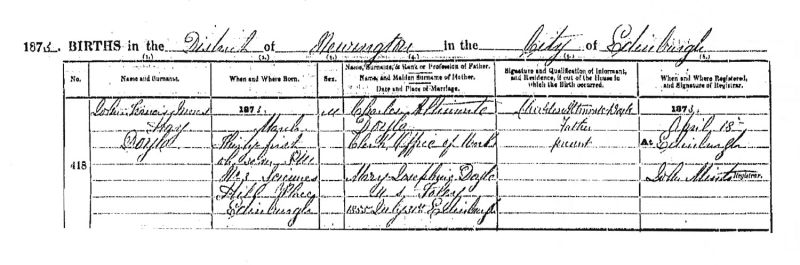 1873. BIRTHS in the District of Newington in the City of Edinburgh
(1.) (2.) (3.) (4.) (5.) (6.)
No. Name and Surname. When and Where Born. Sex. Name, Surname, & Rank or Profession of Father. Name, and Maiden Surname of Mother. Date and Place of Marriage. Signature and Qualification of Informant, and Residence, if out of the House in which the Birth occurred. When and Where Registered, and Signature of Registrar.
418
John Francis Innes
Hay
Doyle
1873.
March
Thirty first
Sciennes
Hill Place
Edinburgh
M
Charles Altimonte
Doyle
Clerk Office of Works
Mary Josephine Doyle
M.S. Foley
1855 July 31st Edinburgh
Charles Altimonte Doyle
Father
present
1873.
April 18th
At Edinburgh
John Minto Registrar.